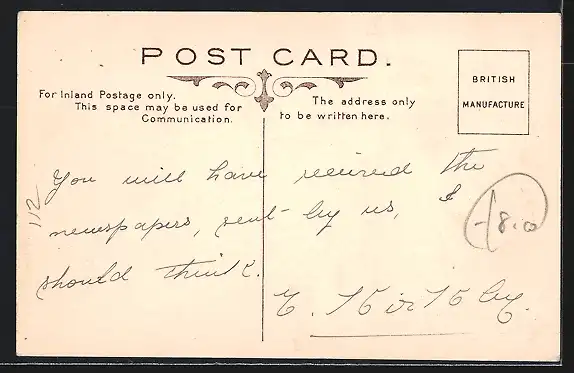 POST CARD.
For Inland Postage only.
This space may be used for
Communication.
The address only
to be written here.
BRITISH
MANUFACTURE
You will have received the
newspapers, sent by us, I
should think.
112
8.00